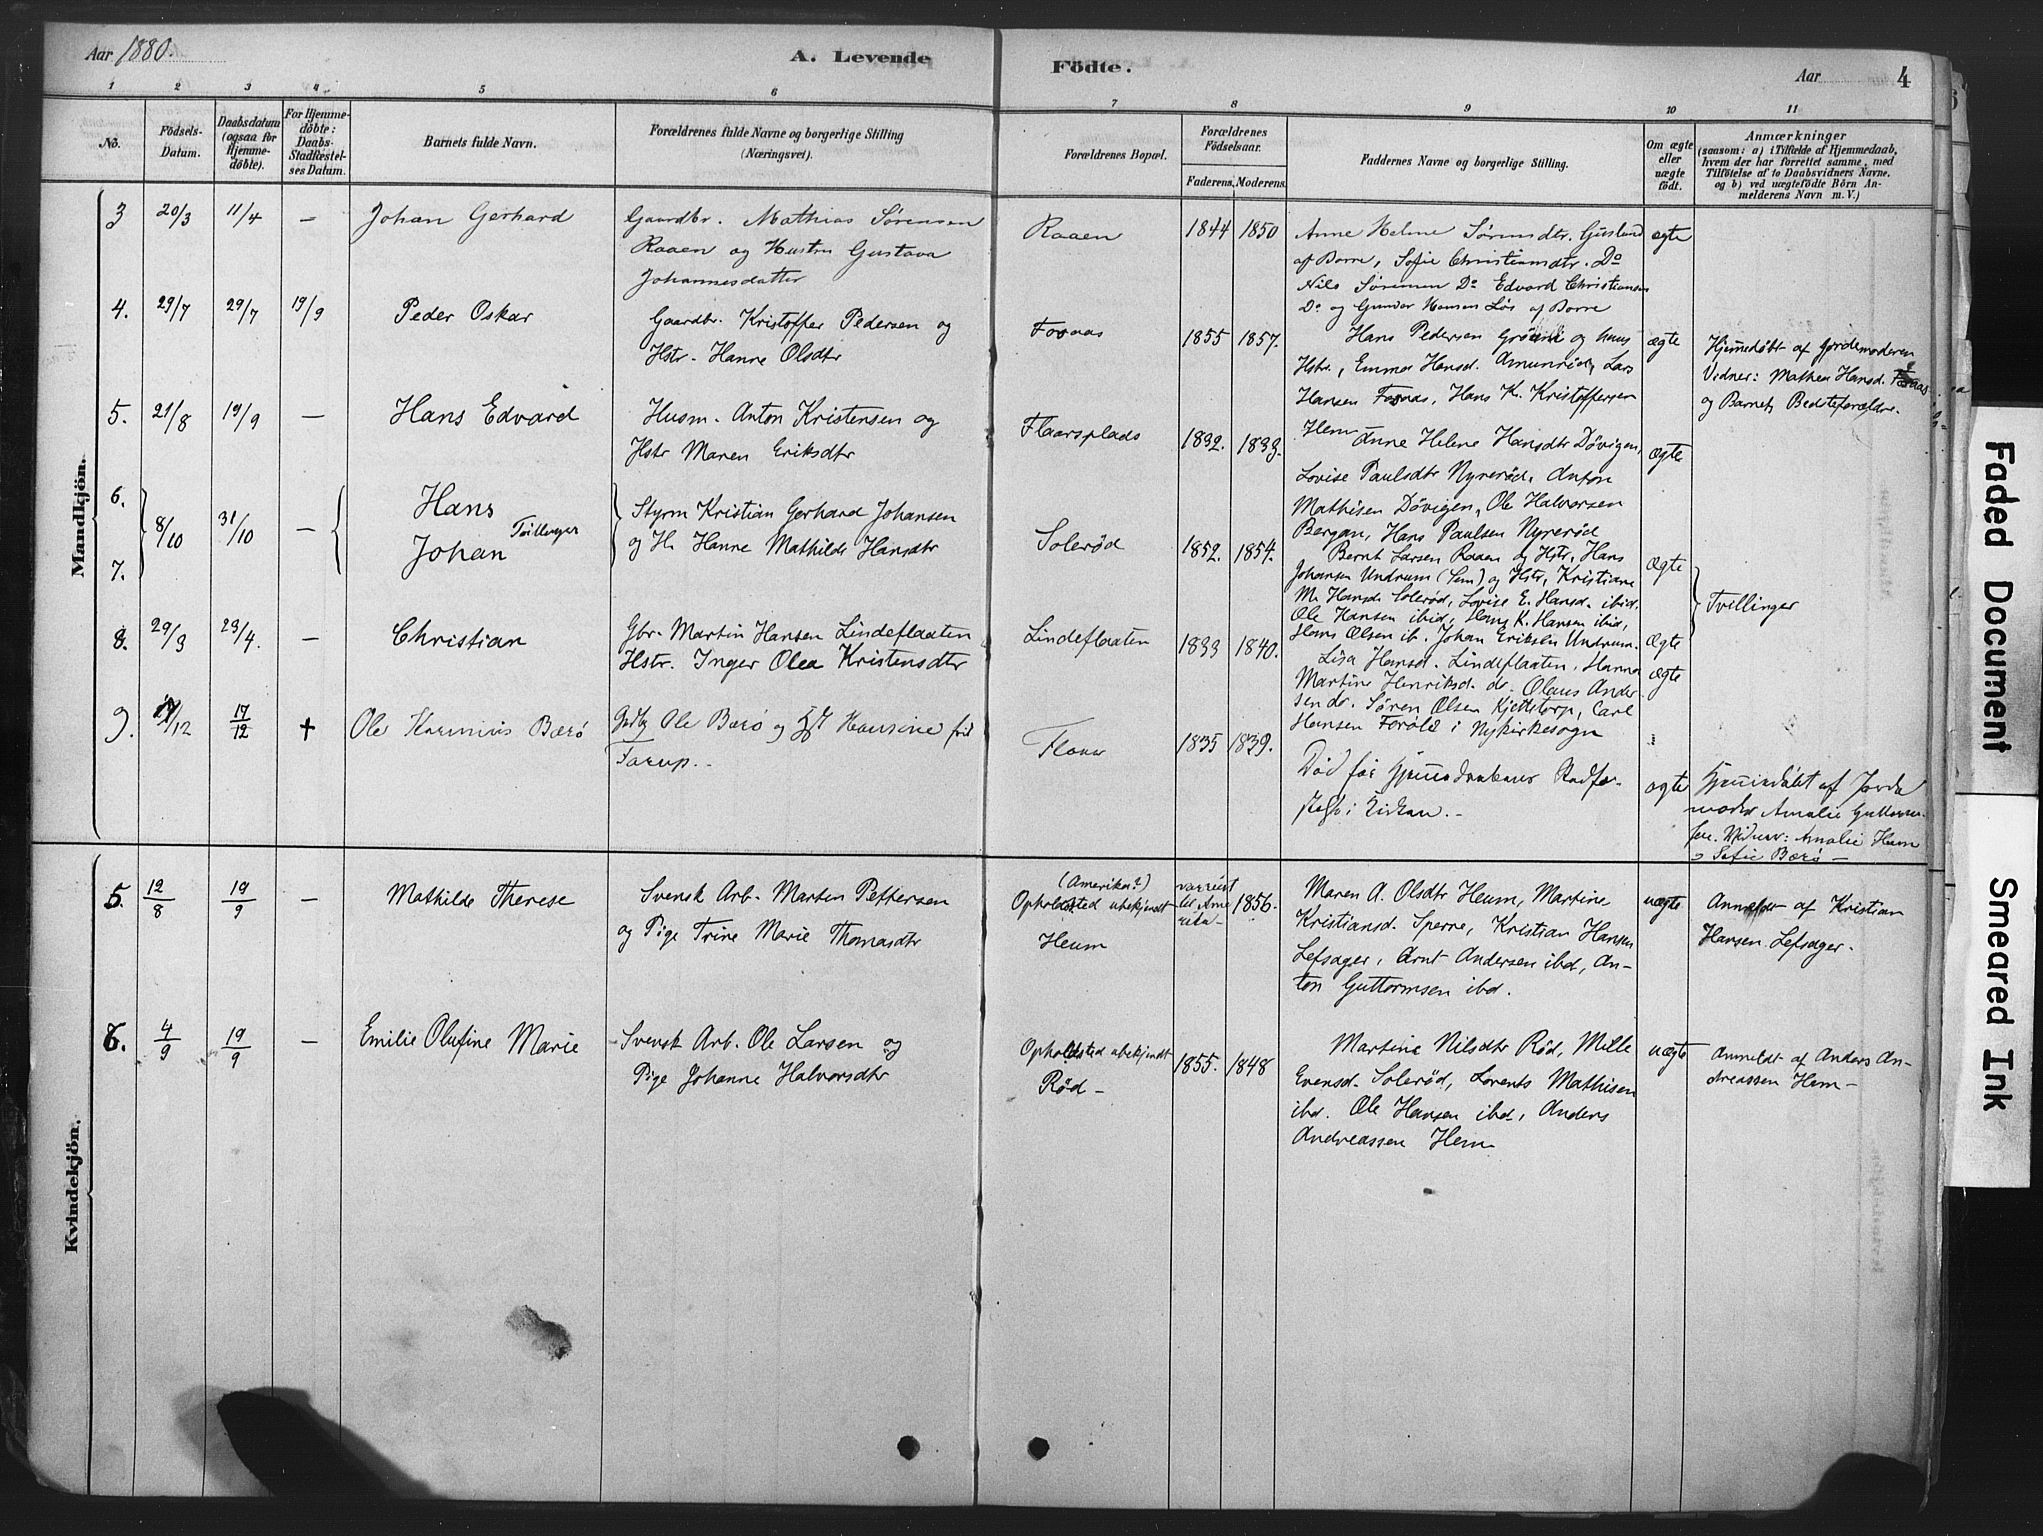 Aar 1880.
A. Levende
Födte.
Aar
4
1 2 3 4 5 6 7 8 9 10 11
No.
Födsels-
Datum.
Daabsdatum
(ogsaa for
Hjemme-
döbte).
For Hjemme-
döbte:
Daabs-
Stadfæstel-
ses Datum.
Barnets fulde Navn.
Forældrenes fulde Navne og borgerlige Stilling
(Næringsvei).
Forældrenes Bopæl.
Forældrenes
Födselsaar.
Faderens.
Moderens.
Faddernes Navne og borgerlige Stilling.
Om ægte
eller
uægte
födt.
Anmærkninger
(saasom: a) i Tilfælde af Hjemmedaab,
hvem der har forrettet samme, med
Tilföielse af to Daabsvidners Navne,
og b) ved uægtefödte Börn An-
melderens Navn m. V.)
Mandkjön.
3 20/3 11/4 – Johan Gerhard
Gaardbr. Mathias Sørensen
Raaen og Hustru Gustava
Johannesdatter
Raaen 1844 1850
Anne Helene Sørensdtr. Gusland
af Borre, Sofie Christiansdtr. Do
Nils Sørensen Do Edvard Christiansen
Do og Gunder Hansen Løs af Borre
ægte
4. 29/7 29/7 19/9 Peder Oskar
Gaardbr. Kristoffer Pedersen og
Hstr. Hanne Olsdtr
Fossaas 1855 1857.
Hans Pedersen og hans
Hstr., Emma Hansd. Amunrød, Lars
Hansen Fossaas, Hans K. Kristoffersen
Hem
ægte
Hjemmedøbt af Gjordemoderen
Vidner: Mathea Hansd.
og Barnets Bedsteforældre.
5. 21/8 19/9 – Hans Edvard
Husm. Anton Kristensen og
Hstr Maren Eriksdtr
Flaarsplads 1832. 1833.
Anne Helene Hansdtr Døvigen,
Lovise Paulsdtr Nyrerød, Anton
Mathisen Døvigen, Ole Halvorsen
Bergan, Hans Paulsen Nyrerød
ægte
6.
7.
8/10 31/10 –
Hans
Johan Tvillinger
Styrm Kristian Gerhard Johansen
og H. Hanne Mathilde Hansdtr
Solerød 1852. 1854.
Bernt Larsen Raaen og Hstr, Hans
Johansen Undrum (Sem) og Hstr, Kristiane
M. Hansd. Solerød, Lovise E. Hansd. ibid.
Ole Hansen ibid, Hans K. Hansen ibid,
Hans Olsen ib. Johan Eriksen Undrum.
ægte
ægte
Tvillinger
8. 29/3 23/4. – Christian
Gbr. Martin Hansen Lindeflaaten
Hstr. Inger Olea Kristensdtr
Lindeflaaten 1833 1840.
Lisa Hansd. Lindeflaaten, Hanna
Martine Henriksd. do. Olaus Ander-
sen do. Søren Olsen Kjettstorp, Carl
Hansen i Nykirkesogn
ægte
9. 17/12 17/12 † Ole Bærø
Ole Bærø og Hansine
Tarup.
1835 1839.
Død før Hjemmedaabens Stadfæ-
stelse i Kirken.
ægte
Hjemmedøbt af Jorde-
moder Amalie Guttorm-
sen. Vidner: Amalie Hem
Sofie Bærø –
Kvindekjön.
5. 12/8 19/9 – Mathilde Therese
Svensk Arb. Martin Pettersen
og Pige Trine Marie Thomasdtr
(Amerika?)
Opholdsted ubekjendt
Heum
1856.
Maren A. Olsdtr Heum, Martine
Kristiansd. Sperre, Kristian Hansen
Lefsager, Arnt Andersen ibd, An-
ton Guttormsen ibd.
uægte
Anmeldt af Kristian
Hansen Lefsager.
6. 4/9 19/9 – Emilie Olufine Marie
Svensk Arb. Ole Larsen og
Pige Johanne Halvorsdtr
Opholdsted ubekjendt
Rød –
1855. 1848
Martine Nilsdtr Rød, Mille
Evensd. Solerød, Lorents Mathisen
ibd. Ole Hansen ibd, Anders
Andreassen Hem
uægte
Anmeldt af Anders An-
dreassen Hem –
Faded Document
Smeared Ink